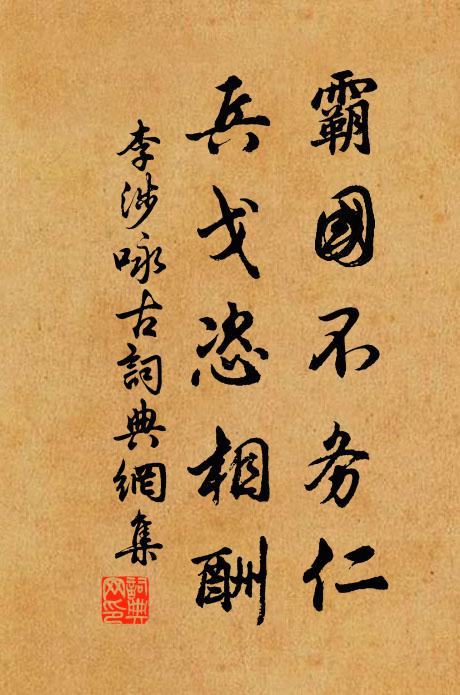 霸國不务仁
兵戈恣相酬
李涉咏古詞典網集
詞典网印